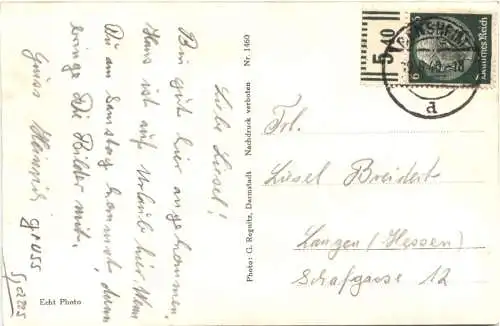 Liebe Liesel!
Bin gut hier angekommen,
Hans ist auf Urlaub hier. Wenn
Du am Samstag kommst, dann
bringe Die Bilder mit.
Gruss Heinrich
Gruss
Echt Photo
Photo: G. Regnitz, Darmstadt Nachdruck verboten Nr. 1460
5 40
Deutsches Reich
6
d
Frl.
Liesel Breidert
Langen (Hessen)
Schafgasse 12